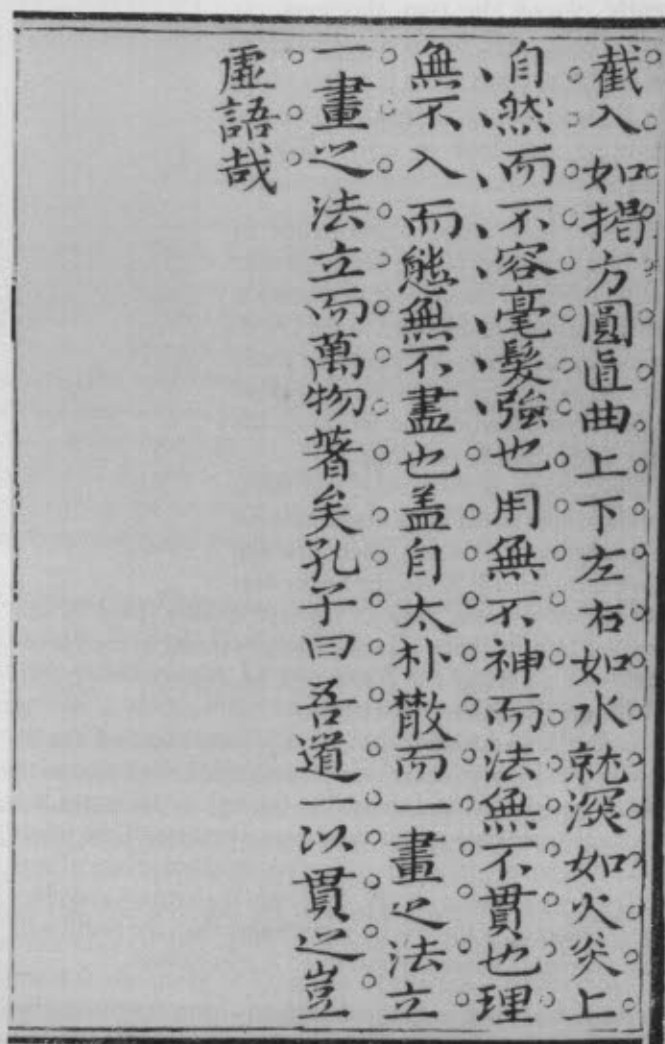 截入如揭方圓直曲上下左右如水就深如火炎上
自然而不容毫髮強也用無不神而法無不貫也理
無不入而態無不盡也盖自太朴散而一畫之法立
一畫之法立而萬物著矣孔子曰吾道一以貫之豈
虛語哉